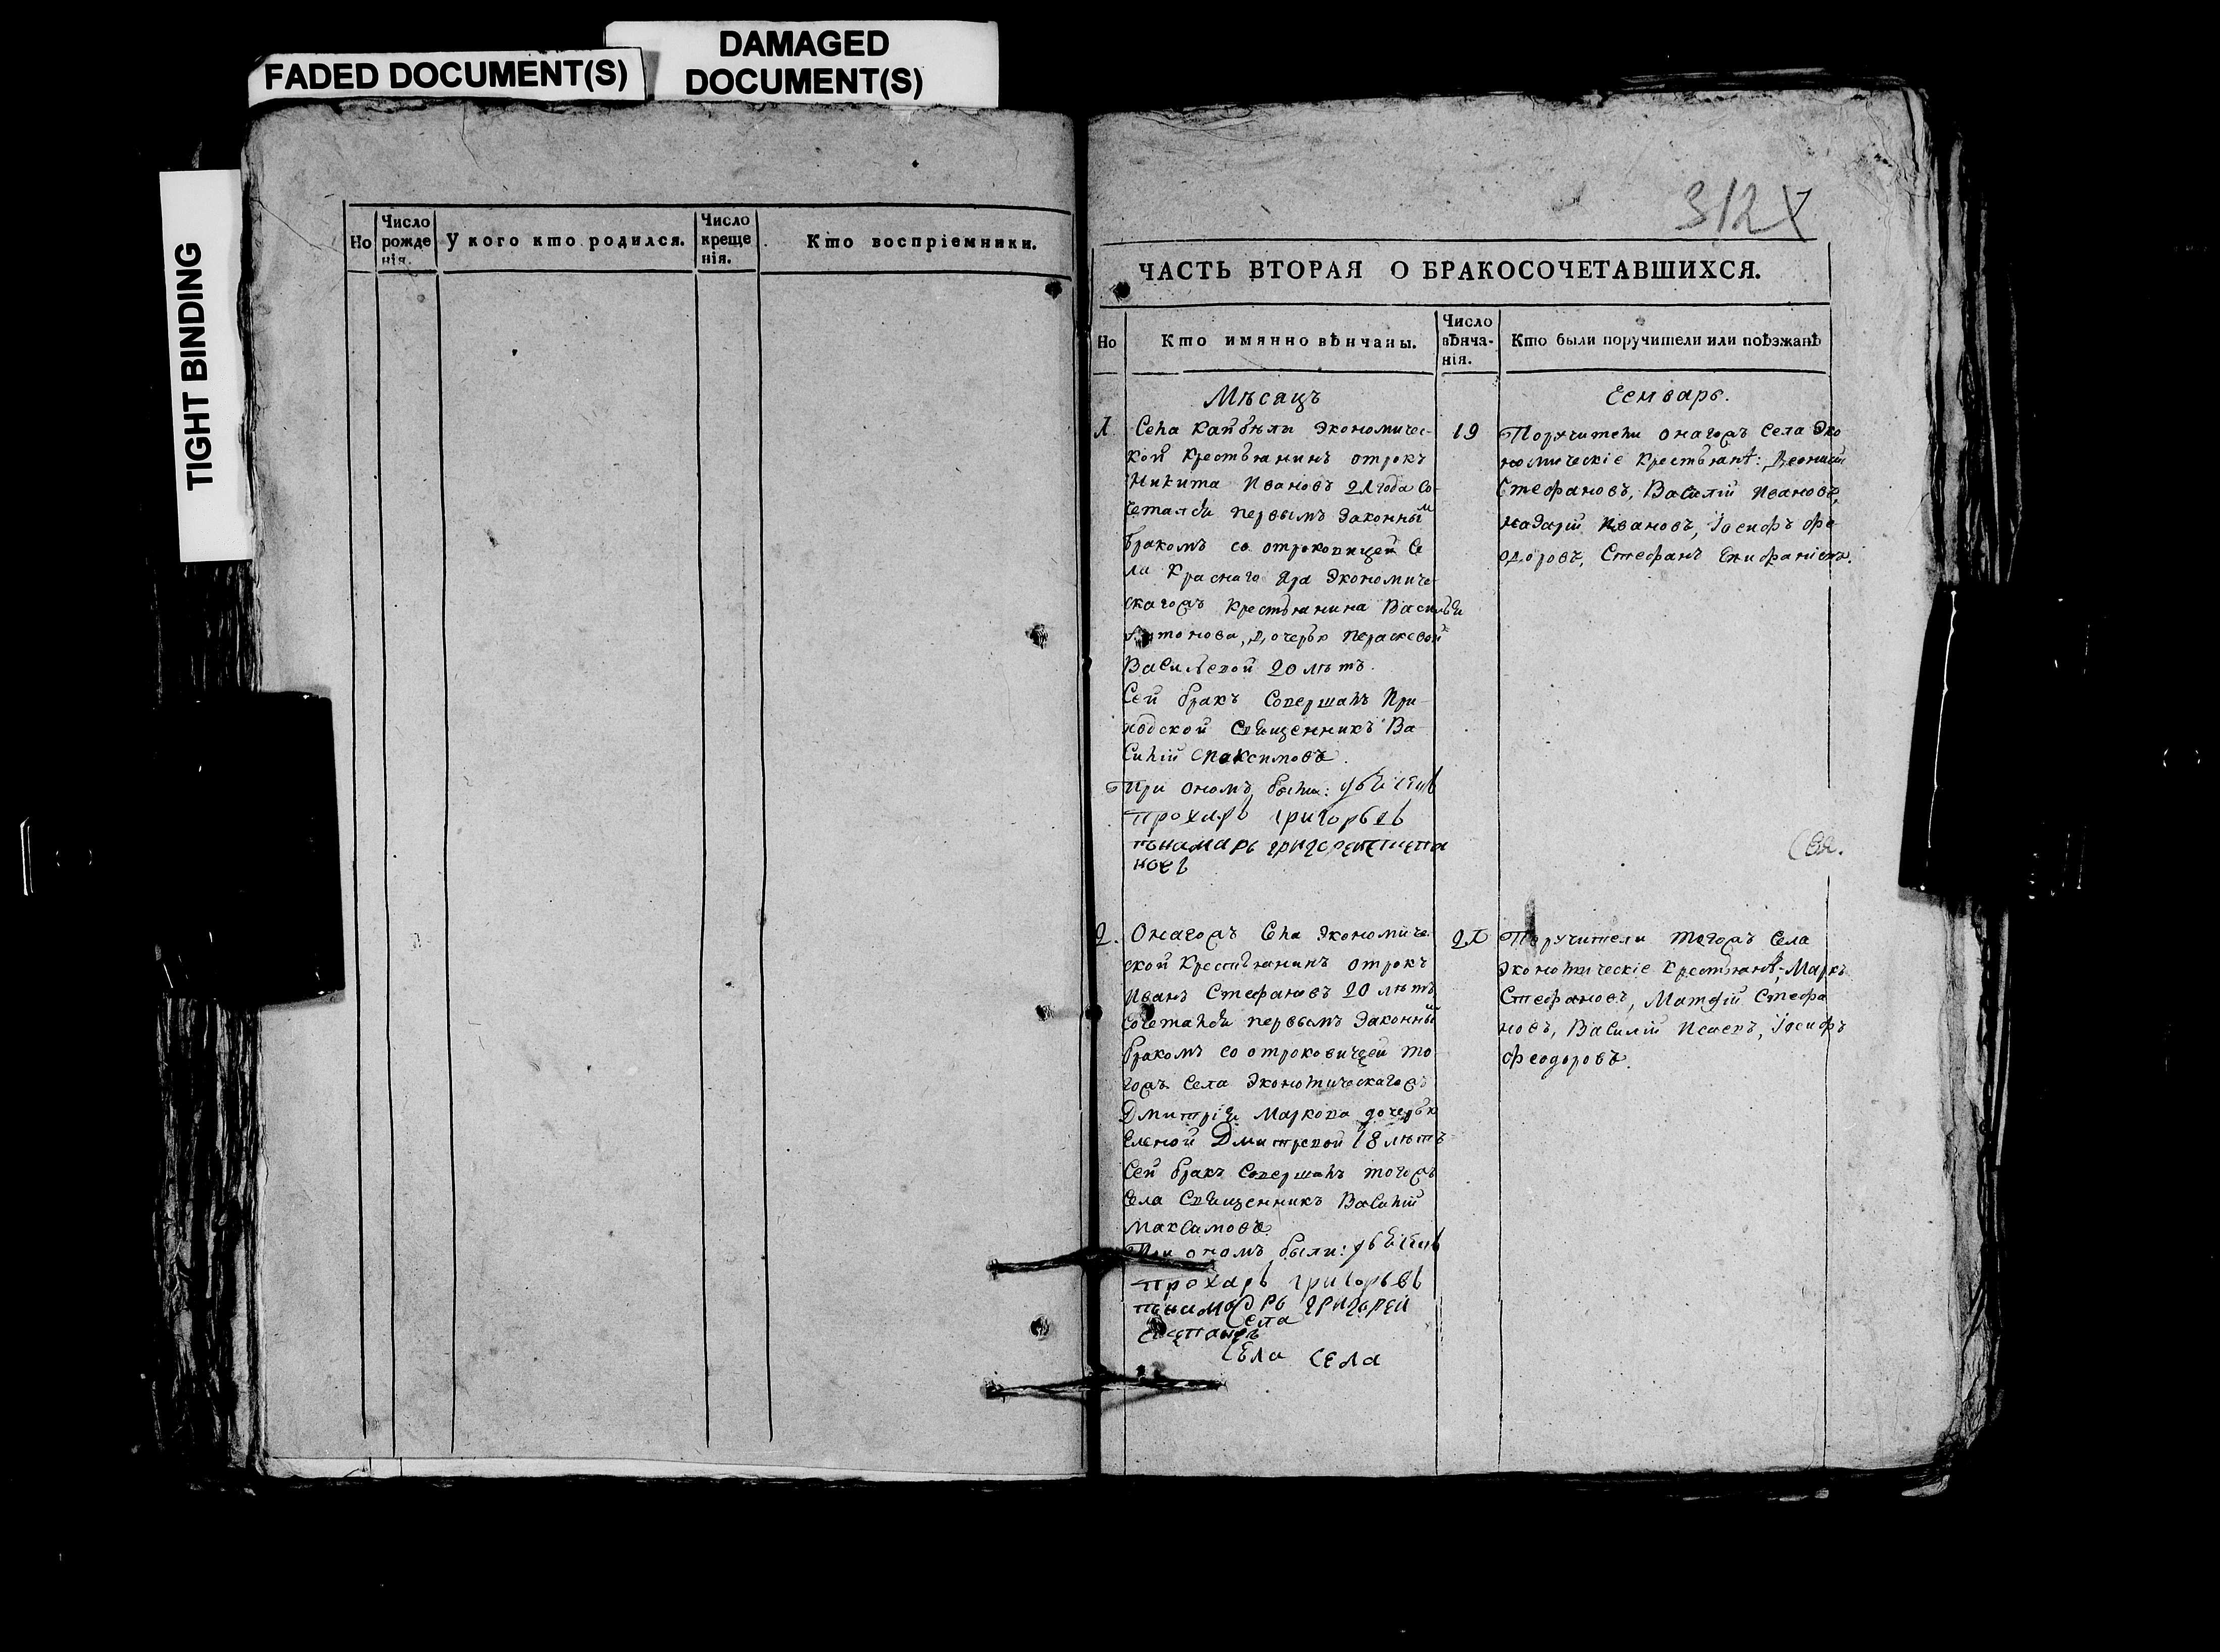 FADED DOCUMENT(S)
DAMAGED
DOCUMENT(S)
TIGHT BINDING
Но
Число
рожде
нія.
У кого кто родился.
Число
креще
нія.
Кто воспріемники.
312
ЧАСТЬ ВТОРАЯ О БРАКОСОЧЕТАВШИХСЯ.
Но
Кто имянно вѣнчаны.
Число
вѣнча-
нія.
Кто были поручители или поѣзжанѣ
Мѣсяцъ
1
Села Кайбѣлы Экономичес-
кой крестьянинъ отрокъ
Никита Ивановъ 21 года со-
четался первымъ законны
бракомъ со отроковицей Се
ла Краснаго Яра Экономиче-
скагожъ крестьянина Василья
Антонова, дочерью Параскевой
Васильевой 20 лѣтъ.
Сей бракъ совершалъ При-
ходской священникъ Ва-
силій Максимовъ.
При ономъ были:
Прохаръ Григорьевъ
понамарь Григорей Степа
новъ
19
Генварь.
Поручители онагожъ села Эко
номическіе крестьянѣ:
Стефановъ, Василій Ивановъ,
Ивановъ, Іосифъ Фе
одоровъ, Стефанъ Епифаніевъ.
2.
Онагожъ Села Экономиче
ской крестьянинъ отрокъ
Иванъ Стефановъ 20 лѣтъ
сочетался первымъ законны
бракомъ со отроковицей то
гожъ села Экономическагожъ
Дмитрія Маркова дочерью
Еленой Дмитревой 18 лѣтъ
Сей бракъ совершалъ тогожъ
села священникъ Василій
Максимовъ.
При ономъ были:
Прохаръ Григорьевъ
понамарь Григорей
села
Степановъ
села села
21
Поручители тогожъ села
экономическіе крестьянѣ, Маркъ
Стефановъ, Матфій Стефа
новъ, Василій Исаевъ, Іосифъ
Феодоровъ.